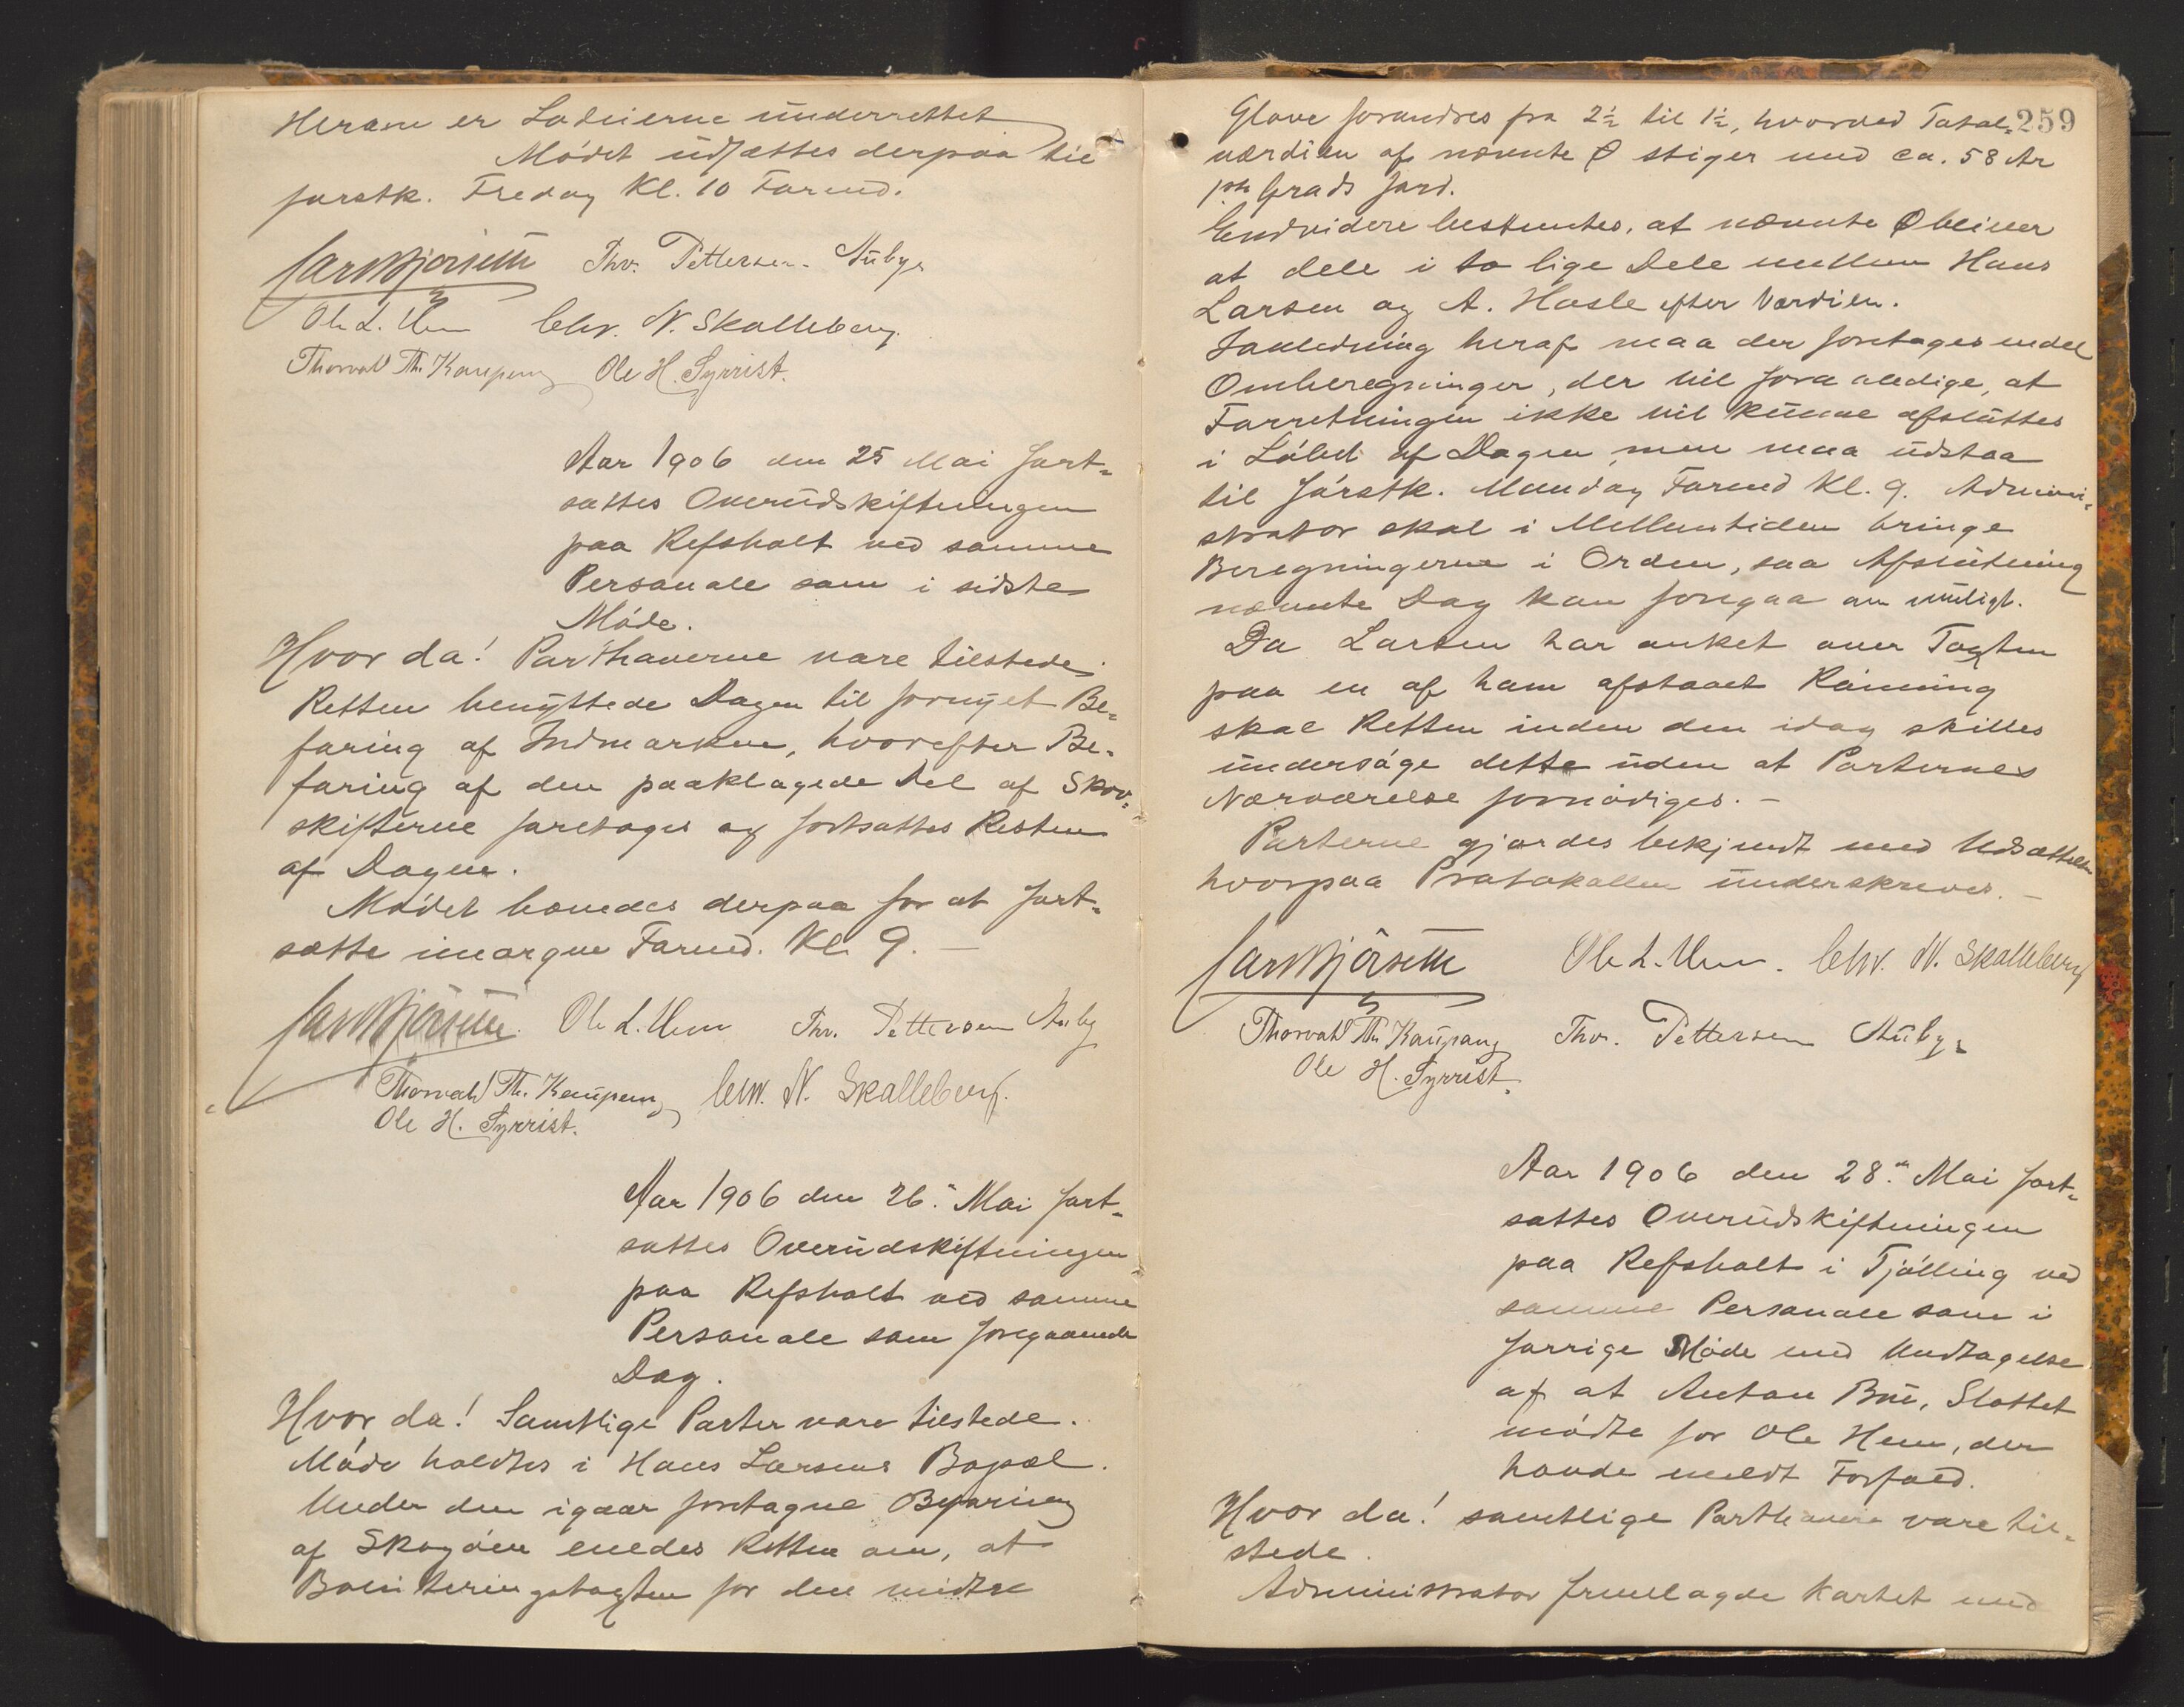 Heraw er Lodeierne underrettet
Mödet udsættes derpaa til
førstk. Fredag Kl. 10 Formd.
Thv. Pettersen Auby
Ole L. Hem Chr. N. Skalleberg
Thorvald Th. Kaupang Ole H. Syrrist.
Aar 1906 den 25 Mai fort-
sattes Overudskiftningen
paa Refsholt ved samme
Personale som i sidste
Möde.
Hvor da! Parthaverne vare tilstede.
Retten benyttede Dagen til fornyet Be-
faring af Indmarken, hvorefter Be-
faring af den paaklagede Del af Skov-
skifterne foretoges og fortsattes Resten
af Dagen.
Mödet hævedes derpaa for at fort-
sætte imorgen Formd. Kl. 9. —
Ole L. Hem Thv. Pettersen Auby
Thorvald Th. Kaupang Chr. N. Skalleberg.
Ole H. Syrrist.
Aar 1906 den 26. Mai fort-
sattes Overudskiftningen
paa Refsholt ved samme
Personale som foregaaende
Dag.
Hvor da! Samtlige Parter vare tilstede.
Möde holdtes i Hans Larsens Bopæl.
Under den igaar foretagne Befaring
af Skogöen enedes Retten om, at
Boniteringstagten for den midtre
259
Glove forandres fra 2½ til 1½, hvorved Total-
værdien af nævnte Ø stiger med ca. 58 Ar
1ste Grads Jord.
Endvidere bestemtes, at nævnte Ø bliver
at dele i to lige Dele mellem Hans
Larsen og A. Hasle efter Værdien.
Ianledning heraf maa der foretages endel
Omberegninger, der vil foraarledige, at
Forretningen ikke vil kunne afsluttes
i Löbet af Dagen, men maa udstaa
til förstk. Mandag Formd Kl. 9. Admini-
strator skal i Mellemtiden bringe
Beregningerne i Orden, saa Afslutning
nævnte Dag kan foregaa om muligt.
Da Larsen har anket over Tagten
paa en af ham afstaaet Rönning
skal Retten inden den idag skilles
undersöge dette uden at Parternes
Nærværelse fornödiges. —
Parterne gjordes bekjendt med Udsættelsen
hvorpaa Protokollen underskreves. —
Ole L. Hem. Chr. N. Skalleberg
Thorvald Th. Kaupang Thv. Pettersen Auby
Ole H. Syrrist.
Aar 1906 den 28. Mai fort-
sattes Overudskiftningen
paa Refsholt i Tjölling ved
samme Personale som i
forrige Möde med Undtagelse
af at Anton Bue, Slottet
mödte for Ole Hem, der
havde meldt Forfald.
Hvor da! samtlige Parthavere vare til-
stede.
Administrator fremlagde Kartet med